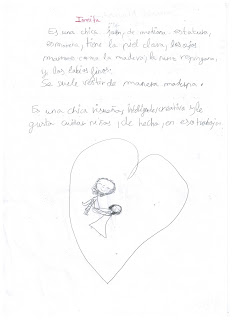 Es una chica de mediana estatura,
tiene la piel clara, los ojos
marrones como la madera, la nariz respingona,
y los labios finos.
Se suele vestir de manera moderna.
Es una chica risueña, inteligente, creativa y le
gusta cuidar niños, de hecho, en eso trabaja.